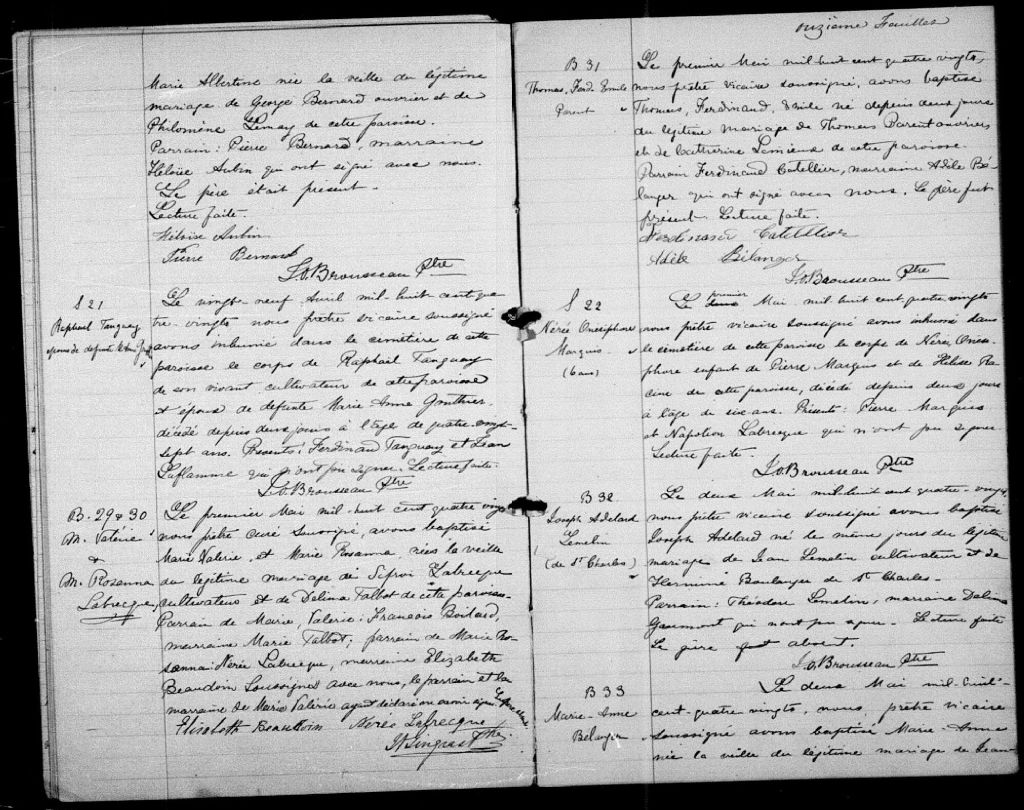 Marie Albertine née la veille du légitime
mariage de George Bernard ouvrier et de
Philomène Lemay de cette paroisse.
Parrain: Pierre Bernard, marraine
Héloïse Aubin qui ont signé avec nous.
Le père était présent.
Lecture faite.
Héloïse Aubin
Pierre Bernard
J.O. Brousseau Ptre
S 21
Raphaël Tanguay
époux de défunte
Le vingt neuf Avril mil-huit cent qua
tre-vingts nous prêtre vicaire soussigné
avons inhumé dans le cimetière de cette
paroisse le corps de Raphaël Tanguay
de son vivant cultivateur de cette paroisse
et époux de défunte Marie Anne Gonthier
décédé depuis deux jours à l'âge de quatre-vingt
sept ans. Présents: Ferdinand Tanguay et Jean
Laflamme qui n'ont pu signer. Lecture faite.
J.O. Brousseau Ptre
B-29 & 30
M. Valérie
&
M. Rosanna
Labrecque
Le premier Mai mil-huit cent quatre vingt
nous prêtre curé soussigné, avons baptisé
Marie Valérie, et Marie Rosanna, nées la veille
du légitime mariage de Labrecque
cultivateur et de Delima Talbot de cette paroisse
Parrain de Marie, Valérie: François Boilard,
marraine Marie Talbot; parrain de Marie Ro-
sanna: Nérée Labrecque, marraine Elizabeth
Beaudoin soussignés avec nous, le parrain et la
marraine de Marie Valérie ayant déclaré ne savoir signer
Elisabeth Beaudoin Nérée Labrecque
onzième Feuillet
B 31
Thomas, Ferd. Emile
Parent
Le premier Mai mil-huit cent quatre vingts,
nous prêtre vicaire soussigné, avons baptisé
Thomas, Ferdinand, Emile né depuis deux jours
du légitime mariage de Thomas Parent ouvrier
et de Catherine Lemieux de cette paroisse
Parrain Ferdinand Catellier, marraine Adèle Bé-
langer qui ont signé avec nous. Le père fut
présent. Lecture faite.
Ferdinand Catellier
Adèle Bélanger
J.O. Brousseau Ptre
S 22
Nérée Onésiphore
Marquis
(6 ans)
Le premier Mai mil-huit cent quatre vingts
nous prêtre vicaire soussigné avons inhumé dans
le cimetière de cette paroisse le corps de Nérée, Onési
phore enfant de Pierre Marquis et de Ra
cine de cette paroisse, décédé depuis deux jours
à l'âge de six ans. Présents: Pierre Marquis
et Napoléon Labrecque qui n'ont pu signer.
Lecture faite.
J.O. Brousseau Ptre
B 32
Joseph Adelard
Lemelin
(de St Charles)
Le deux Mai mil-huit cent quatre-vingt,
nous prêtre vicaire soussigné avons baptisé
Joseph Adelard né le même jour du légitime
mariage de Jean Lemelin cultivateur et de
Herminie Boulanger de St Charles.
Parrain: Théodore Lemelin, marraine Delima
qui n'ont pu signer. Lecture faite
Le père fut absent.
J.O. Brousseau Ptre
B 33
Marie-Anne
Bélanger
Le deux Mai mil-huit-
cent-quatre vingts, nous, prêtre vicaire
soussigné avons baptisé Marie-Anne
née la veille du légitime mariage de Jean-